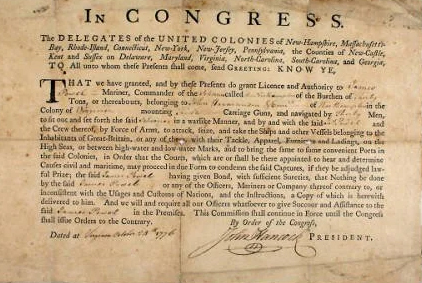 IN CONGRESS.
The DELEGATES of the UNITED COLONIES of New-Hampshire, Massachusetts-
Bay, Rhode-Island, Connecticut, New-York, New-Jersey, Pennsylvania, the Counties of New-Castle,
Kent and Sussex on Delaware, Maryland, Virginia, North-Carolina, South-Carolina, and Georgia,
TO All unto whom these Presents shall come, send GREETING: KNOW YE,
THAT we have granted, and by these Presents do grant Licence and Authority to James
Mariner, Commander of the called of the Burthen of
Tons, or thereabouts, belonging to
Colony of mounting Carriage Guns, and navigated by Thirty Men,
to fit out and set forth the said in a warlike Manner, and by and with the said
the Crew thereof, by Force of Arms, to attack, seize, and take the Ships and other Vessels belonging to the
Inhabitants of Great-Britain, or any of them, with their Tackle, Apparel, Furniture and Ladings, on the
High Seas, or between high-water and low-water Marks, and to bring the same to some convenient Ports in
the said Colonies, in Order that the Courts, which are or shall be there appointed to hear and determine
Causes civil and maritime, may proceed in due Form to condemn the said Captures, if they be adjudged law-
ful Prize; the said James having given Bond, with sufficient Sureties, that Nothing be done
by the said James or any of the Officers, Mariners or Company thereof contrary to, or
inconsistent with the Usages and Customs of Nations, and the Instructions, a Copy of which is herewith
delivered to him. And we will and require all our Officers whatsoever to give Succour and Assistance to the
said James in the Premises. This Commission shall continue in Force until the Congress
shall issue Orders to the Contrary.
By Order of the Congress,
Dated at 1776
John Hancock PRESIDENT.